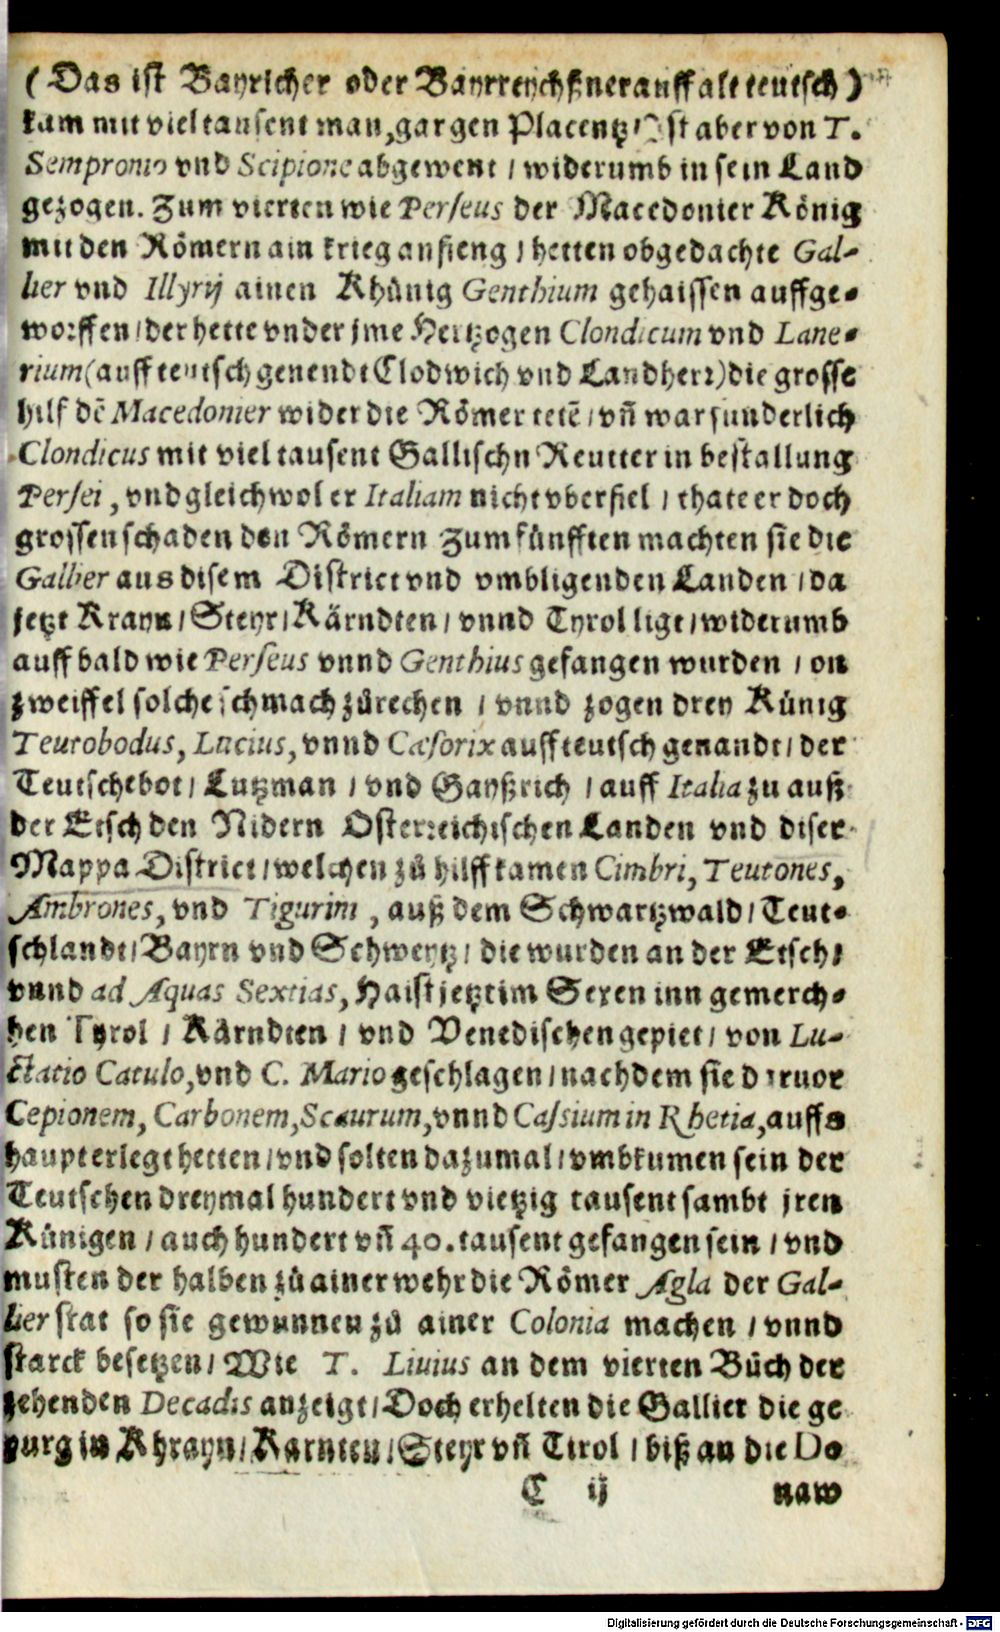 (Das ist Bayricher oder Bayrreychßner auff alt teutsch)
kam mit viel tausent man, gar gen Placentz / Ist aber von T.
Sempronio vnd Scipione abgewent / widerumb in sein Land
gezogen. Zum vierten wie Perseus der Macedonier König
mit den Römern ain krieg anfieng / hetten obgedachte Gal-
lier vnd Illyrij ainen Khünig Genthium gehaissen auffge-
worffen / der hette vnder jme Hertzogen Clondicum vnd Lane-
rium (auff teutsch genendt Clodwich vnd Landherr) die grosse
hilf dē Macedonier wider die Römer tetē / vñ war sunderlich
Clondicus mit viel tausent Gallischn Reutter in bestallung
Persei, vnd gleichwol er Italiam nicht vberfiel / thate er doch
grossen schaden den Römern Zum fünfften machten sie die
Gallier aus disem District vnd vmbligenden Landen / da
jetzt Krayn / Steyr / Kärndten / vnnd Tyrol ligt / widerumb
auff bald wie Perseus vnnd Genthius gefangen wurden / on
zweiffel solche schmach zůrechen / vnnd zogen drey Künig
Teutobodus, Lucius, vnnd Cæsorix auff teutsch genandt / der
Teutschebot / Lutzman / vnd Gayßrich / auff Italia zu auß
der Etsch den Nidern Osterreichischen Landen vnd diser
Mappa District / welchen zů hilff kamen Cimbri, Teutones,
Ambrones, vnd Tigurini, auß dem Schwartzwald / Teut-
schlandt / Bayrn vnd Schweytz / die wurden an der Etsch /
vnnd ad Aquas Sextias, Haist jetzt im Sexen inn gemerch-
hen Tyrol / Kärndten / vnd Venedischen gepiet / von Lu-
ctatio Catulo, vnd C. Mario geschlagen / nachdem sie daruor
Cepionem, Carbonem, Scaurum, vnnd Cassium in Rhetia, auffs
haupt erlegt hetten / vnd solten dazumal / vmbkumen sein der
Teutschen dreymal hundert vnd viertzig tausent sambt jren
Künigen / auch hundert vñ 40. tausent gefangen sein / vnd
musten der halben zů ainer wehr die Römer Agla der Gal-
lier stat so sie gewunnen zů ainer Colonia machen / vnnd
starck besetzen / Wie T. Liuius an dem vierten Büch der
zehenden Decadis anzeigt / Doch erhelten die Gallier die ge
purg in Khrayn / Karnten / Steyr vñ Tirol / biß an die Do
C ij naw
Digitalisierung gefördert durch die Deutsche Forschungsgemeinschaft - DFG